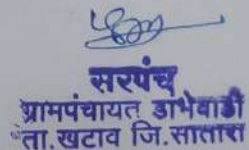 सरपंच
ग्रामपंचायत डाभेवाडी
ता.खटाव जि.सातारा